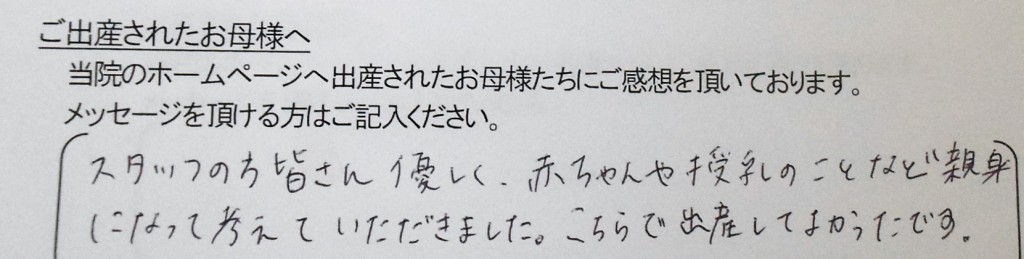 ご出産されたお母様へ
当院のホームページへ出産されたお母様たちにご感想を頂いております。
メッセージを頂ける方はご記入ください。
スタッフの方皆さん優しく、赤ちゃんや授乳のことなど親身
になって考えていただきました。こちらで出産してよかったです。